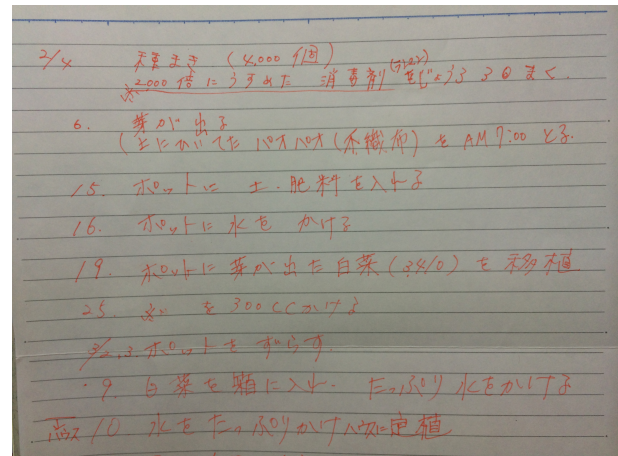 2/4 種まき (4,000個)
※2000倍にうすめた 消毒剤 じょうろ 3回まく.
6. 芽が出る
(土にひいてた パオパオ(不織布)を AM 7:00 とる.
15. ポットに 土.肥料を入れる
16. ポットに水を かける
19. ポットに芽が出た白菜(3,410)を移植
25. ※を300ccかける
3/2,3. ポットをずらす.
・9. 白菜を箱に入れ. たっぷり水をかける
10 水をたっぷりかけハウスに定植